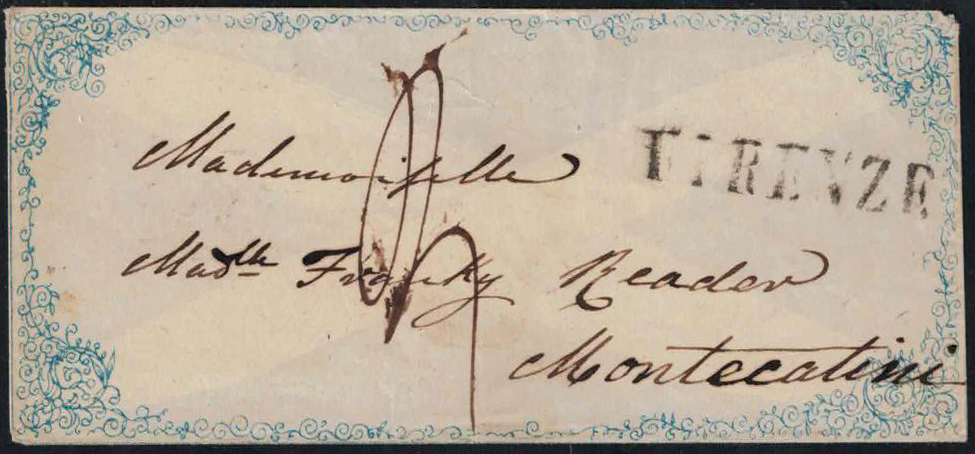 Mademoiselle
FIRENZE
Madlle Franky Reader
Montecatini